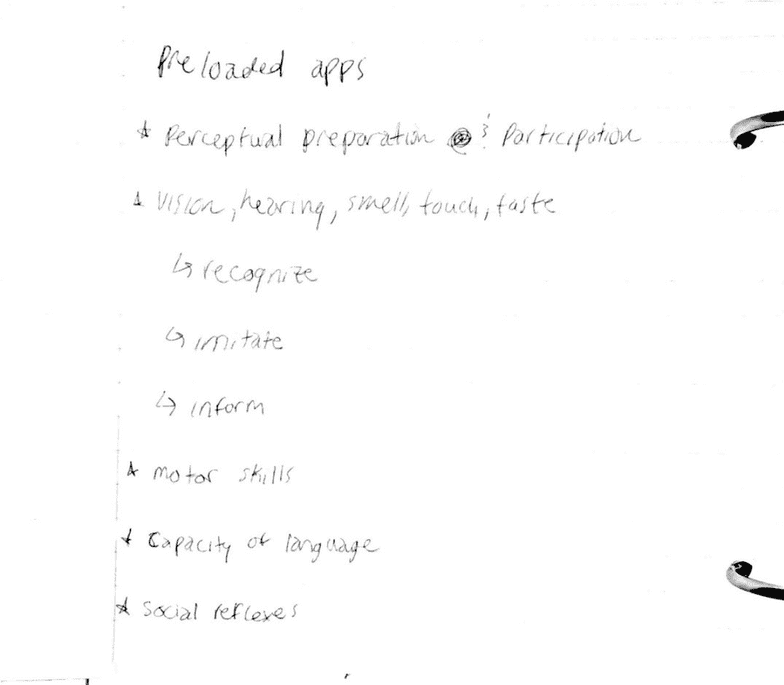 Preloaded apps
* Perceptual preparation & Participation
* Vision, hearing, smell, touch, taste
↳ recognize
↳ imitate
↳ inform
* motor skills
* Capacity of language
* Social reflexes